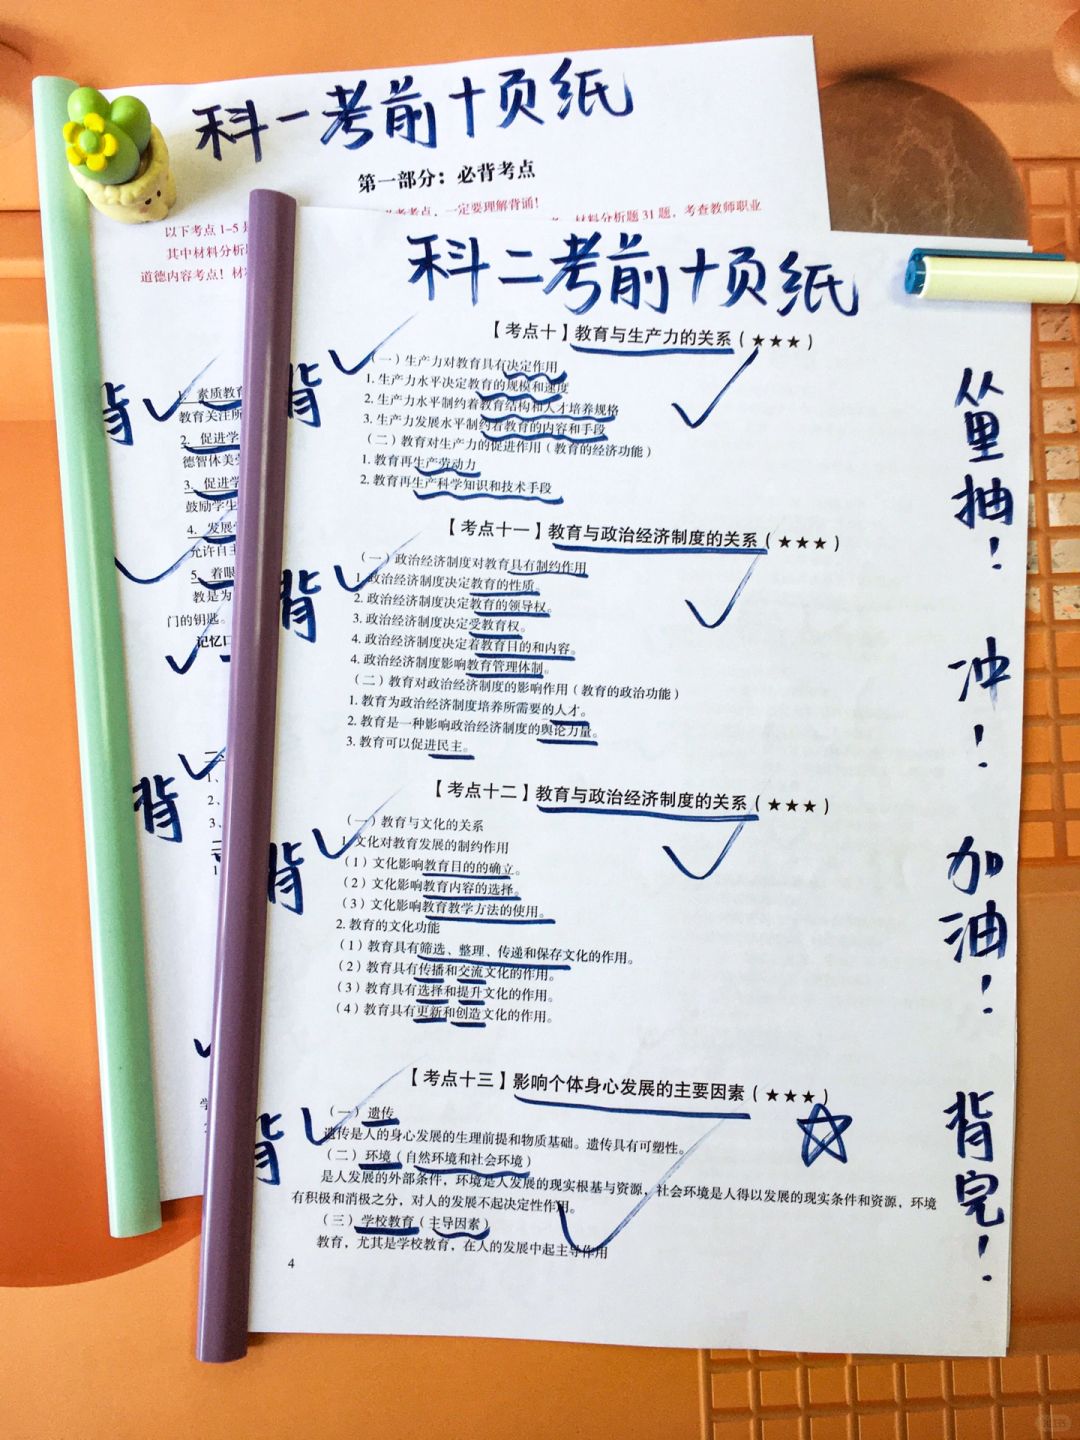 科一考前十页纸
第一部分：必背考点
必考考点，一定要理解背诵！
以下考点1-5
材料分析题31题，考查教师职业
其中材料分析
道德内容考点！材
背
1. 素质教育
教育关注所
2. 促进学
德智体美
3. 促进学
鼓励学生
4. 发展
允许自主
5. 着眼
教是为
门的钥匙。
记忆口
背
1、
2、
3、
1
科二考前十页纸
【考点十】教育与生产力的关系（★★★）
背
（一）生产力对教育具有决定作用
1. 生产力水平决定教育的规模和速度
2. 生产力水平制约着教育结构和人才培养规格
3. 生产力发展水平制约着教育的内容和手段
（二）教育对生产力的促进作用（教育的经济功能）
1. 教育再生产劳动力
2. 教育再生产科学知识和技术手段
【考点十一】教育与政治经济制度的关系（★★★）
背
（一）政治经济制度对教育具有制约作用
1. 政治经济制度决定教育的性质。
2. 政治经济制度决定教育的领导权。
3. 政治经济制度决定受教育权。
4. 政治经济制度决定着教育目的和内容。
4. 政治经济制度影响教育管理体制。
（二）教育对政治经济制度的影响作用（教育的政治功能）
1. 教育为政治经济制度培养所需要的人才。
2. 教育是一种影响政治经济制度的舆论力量。
3. 教育可以促进民主。
【考点十二】教育与政治经济制度的关系（★★★）
背
（一）教育与文化的关系
1. 文化对教育发展的制约作用
（1）文化影响教育目的的确立。
（2）文化影响教育内容的选择。
（3）文化影响教育教学方法的使用。
2. 教育的文化功能
（1）教育具有筛选、整理、传递和保存文化的作用。
（2）教育具有传播和交流文化的作用。
（3）教育具有选择和提升文化的作用。
（4）教育具有更新和创造文化的作用。
【考点十三】影响个体身心发展的主要因素（★★★）
背
（一）遗传
遗传是人的身心发展的生理前提和物质基础。遗传具有可塑性。
（二）环境（自然环境和社会环境）
是人发展的外部条件，环境是人发展的现实根基与资源，社会环境是人得以发展的现实条件和资源，环境
有积极和消极之分，对人的发展不起决定性作用。
（三）学校教育（主导因素）
教育，尤其是学校教育，在人的发展中起主导作用
4
从里抽！
冲！
加油！
背完！